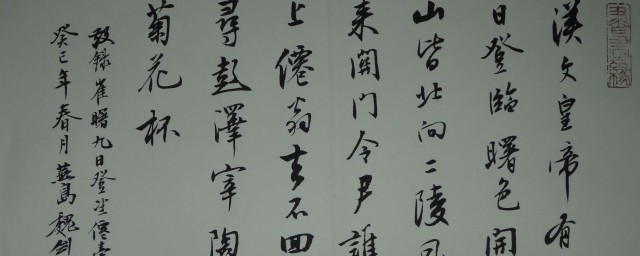 漢文皇帝有
日登臨曙色開
山皆北向二陵風
來關門令尹誰
上僊翁去不回
尋彭澤宰陶
菊花杯
敬錄崔曙九日登望僊臺
癸巳年春月島魏